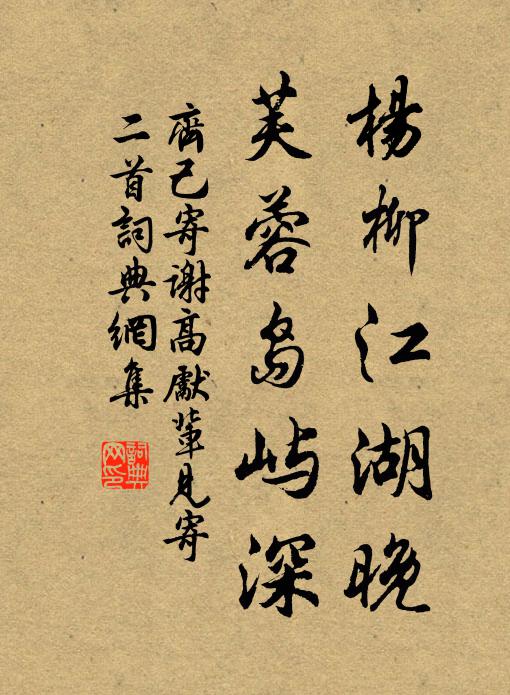 楊柳江湖晚
芙蓉島嶼深
齊己寄謝高獻輩見寄
二首詞典網集
詞典
网印